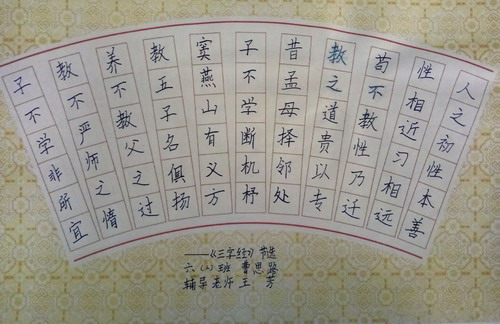 人之初性本善
性相近习相远
苟不教性乃迁
教之道贵以专
昔孟母择邻处
子不学断机杼
窦燕山有义方
教五子名俱扬
养不教父之过
教不严师之惰
子不学非所宜
——《三字经》节选
六(2)班 曹思路
辅导老师 王芳